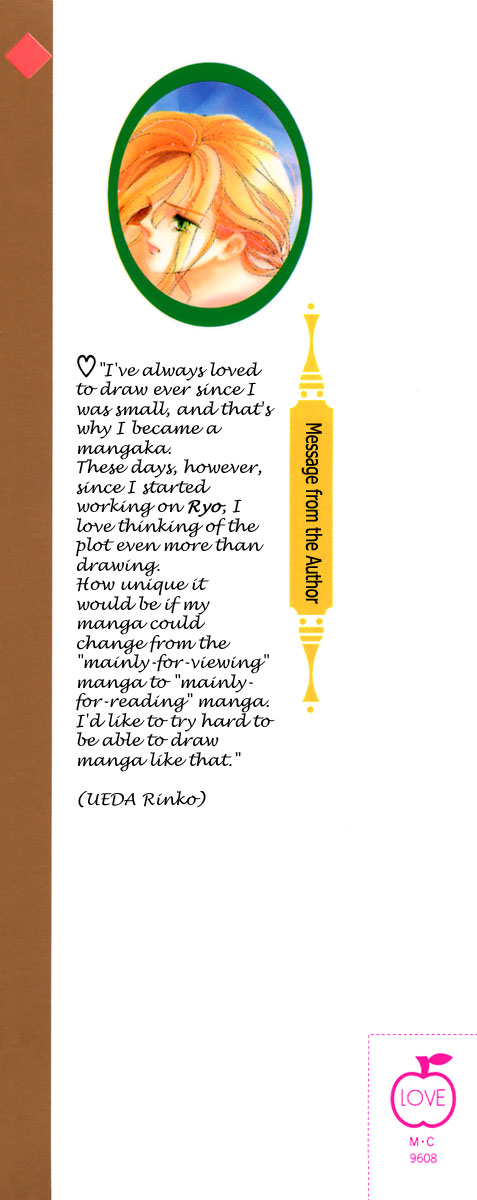 ♡"I've always loved
to draw ever since I
was small, and that's
why I became a
mangaka.
These days, however,
since I started
working on Ryo, I
love thinking of the
plot even more than
drawing.
How unique it
would be if my
manga could
change from the
"mainly-for-viewing"
manga to "mainly-
for-reading" manga.
I'd like to try hard to
be able to draw
manga like that."
(UEDA Rinko)
Message from the Author
LOVE
M·C
9608